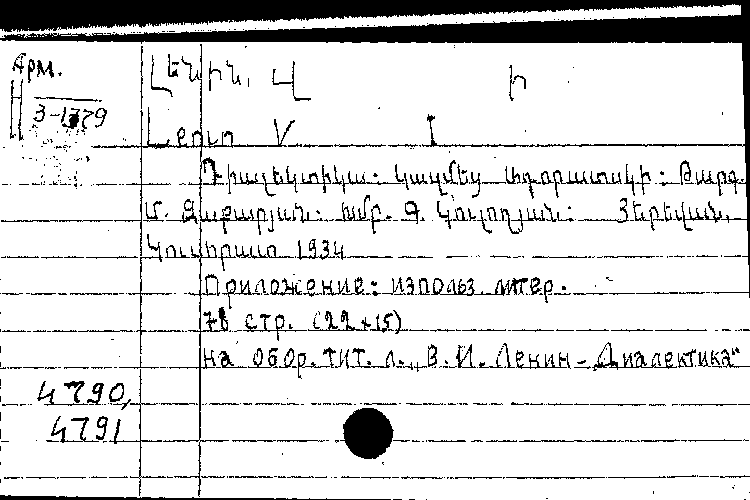 Арм.
Լենին, Վ. Ի
3-1779
Lenin V I
Դիալեկտիկա: Կազմեց Ադորատսկի: Թարգ.
Մ. Զաքարյան: Խմբ. Գ. Հերեվան,
Կուսհրատ 1934
Приложение: использ. литер.
78 стр. (22×15)
на обор. тит. л. „В. И. Ленин - Диалектика"
4790,
4791